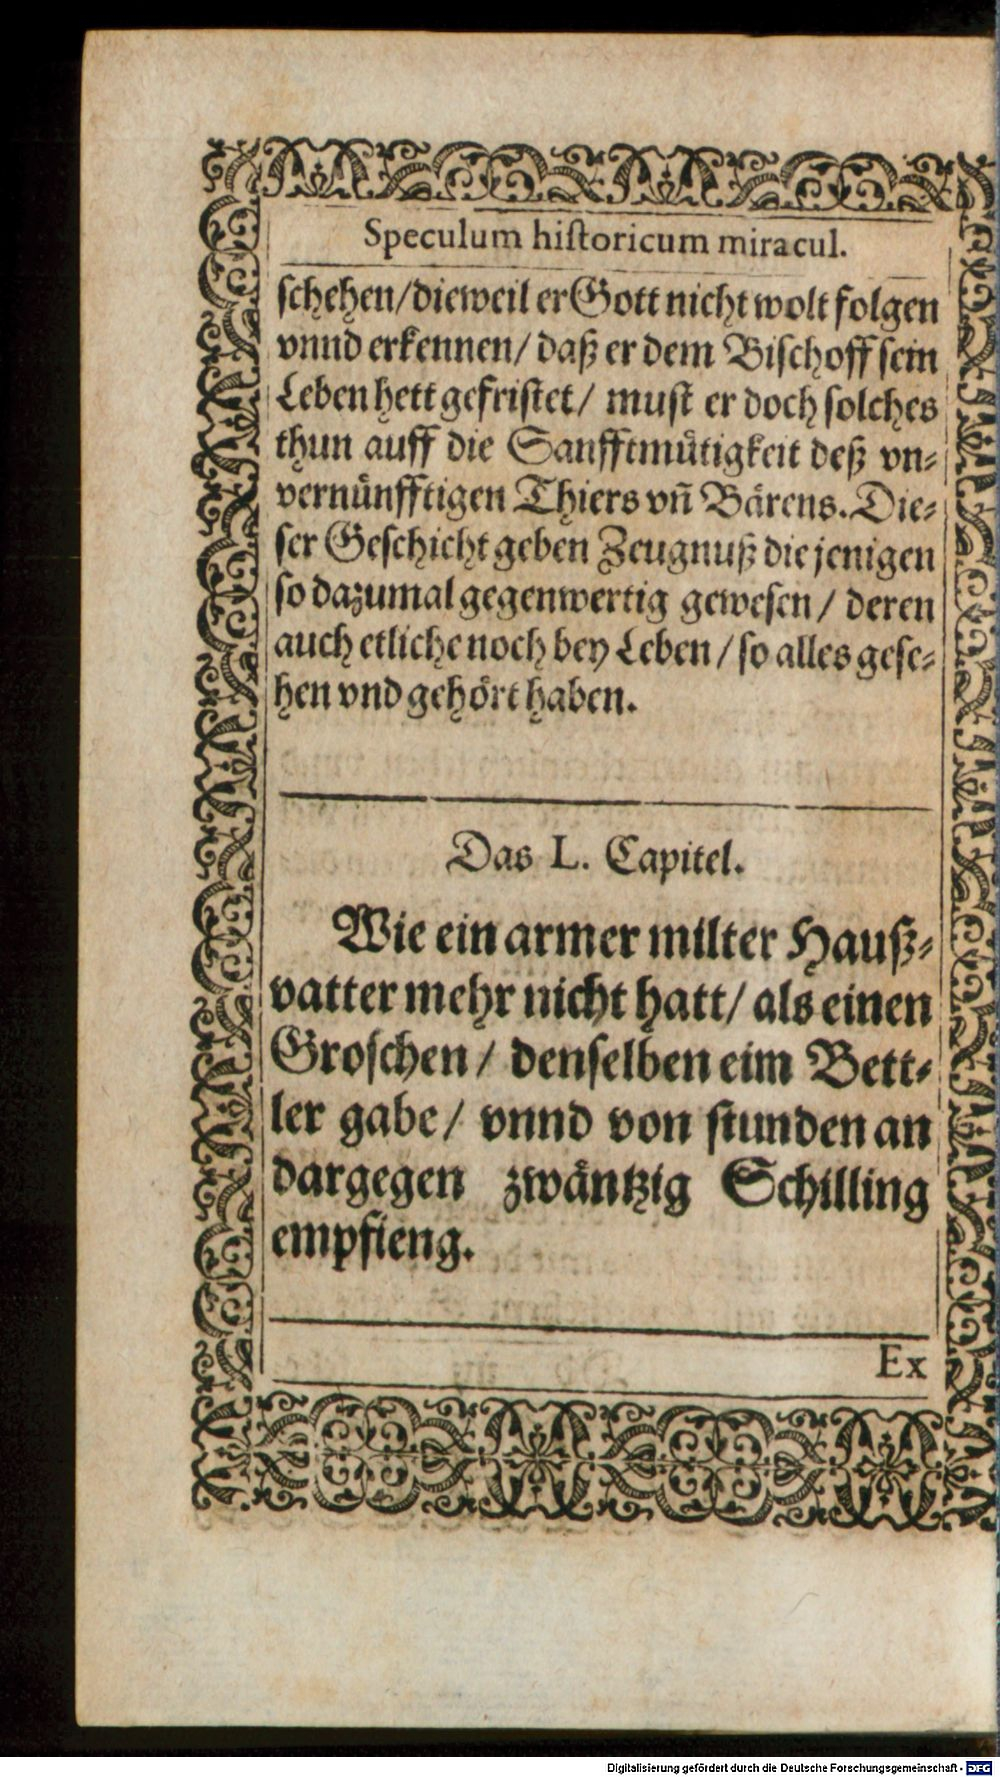 Speculum hiſtoricum miracul.
ſchehen/dieweil er Gott nicht wolt folgen
vnnd erkennen/ daß er dem Biſchoff ſein
Leben hett gefriſtet/ muſt er doch ſolches
thun auff die Sanfftmuͤtigkeit deß vn⸗
vernuͤnfftigen Thiers vñ Baͤrens. Die⸗
ſer Geſchicht geben Zeugnuß die jenigen
ſo dazumal gegenwertig geweſen/ deren
auch etliche noch bey Leben/ ſo alles geſe⸗
hen vnd gehoͤrt haben.
Das L. Capitel.
Wie ein armer milter Hauß⸗
vatter mehr nicht hatt/ als einen
Groſchen/ denſelben eim Bett⸗
ler gabe/ vnnd von ſtunden an
dargegen zwaͤntzig Schilling
empfieng.
Ex
Digitalisierung gefördert durch die Deutsche Forschungsgemeinschaft - DFG